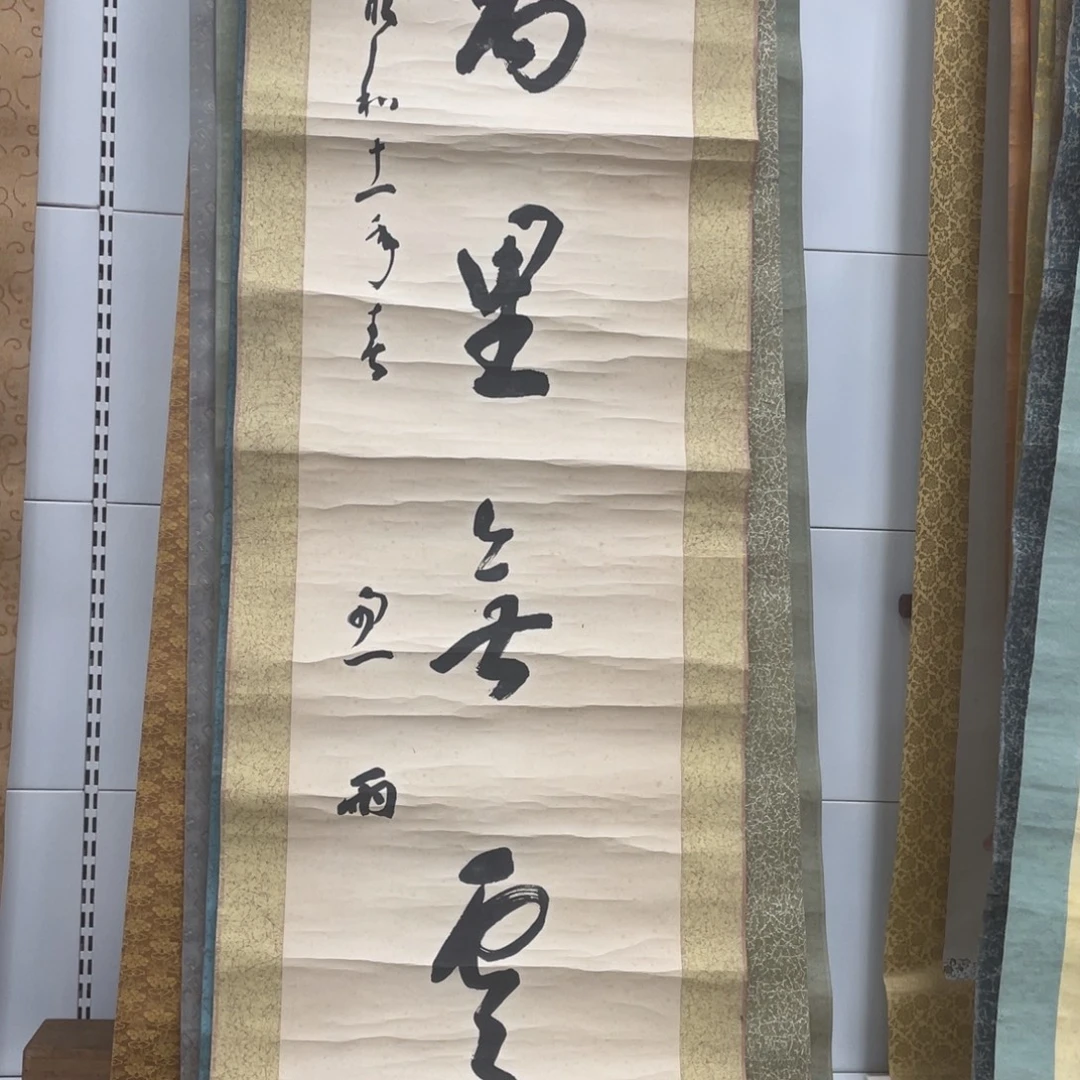 萬里無雲
昭和十一年春